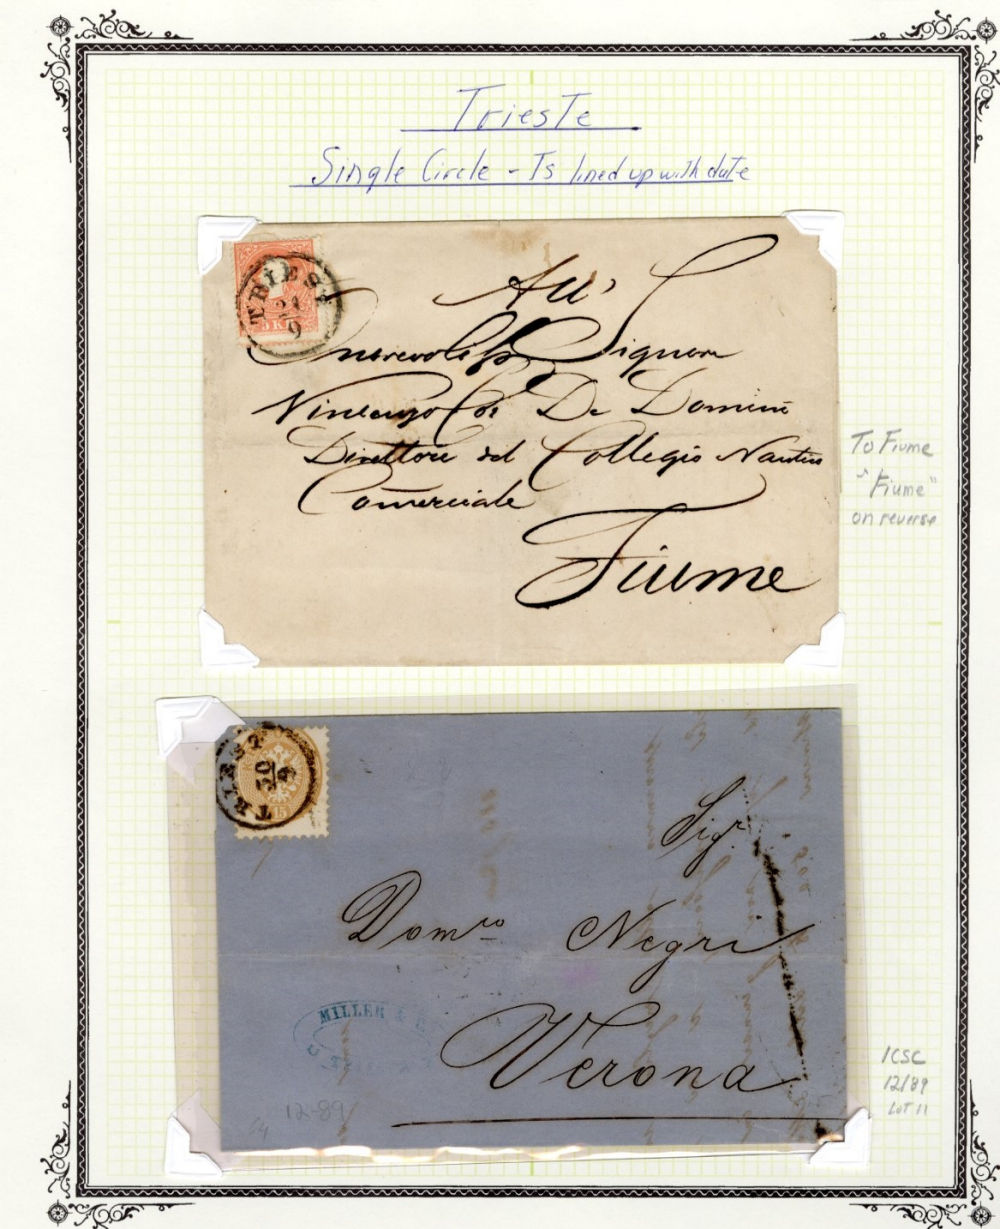 Trieste
Single Circle - Ts lined up with date
TRIEST
21
9
5 KR
All'
Signore
Vincenzo De Domini
Direttore del Collegio Nautico
Comerciale
Fiume
To Fiume
"Fiume"
on reverse
TRIEST
30
9
15
Sigr
Domco Negri
Verona
MILLER &
12-89
64
ICSC
12/89
LOT 11